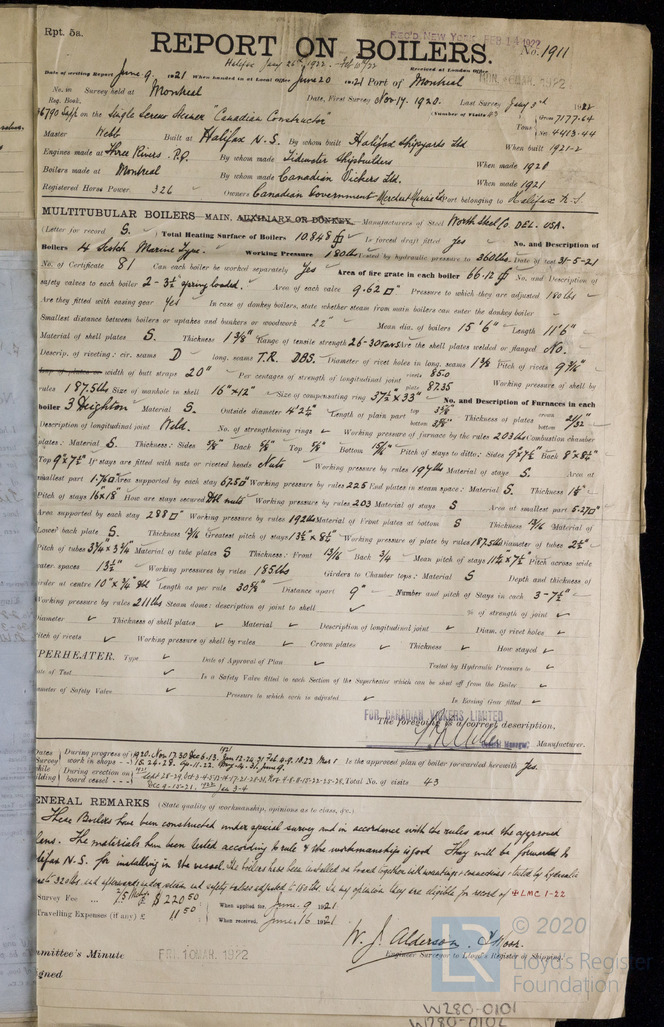 Rpt. 5a.
REC'D NEW YORK FEB 14 1922
REPORT ON BOILERS.
No. 1911
Halifax Jany 26th 1922.
Received at London Office
Date of writing Report June 9 1921 When handed in at Local Office June 20 1921 Port of Montreal
No. in Survey held at Montreal Date, First Survey Nov. 17. 1920. Last Survey Jany 3rd 1922
Reg. Book.
(Number of Visits
on the Single Screw Steamer "Canadian Constructor"
Gross 7177.64
Tons
Net 4413.44
Master Webb Built at Halifax N.S. By whom built Halifax Shipyards Ltd When built 1921-2
Engines made at Three Rivers. P.Q. By whom made Tidewater Shipbuilders When made 1920
Boilers made at Montreal By whom made Canadian Vickers Ltd. When made 1921
Registered Horse Power 326 Owners Canadian Government Merchant Marine Ltd Port belonging to Halifax N.S
MULTITUBULAR BOILERS—MAIN, AUXILIARY OR DONKEY.— Manufacturers of Steel Worth Steel Co DEL. USA.
(Letter for record S. ) Total Heating Surface of Boilers 10.848 Is forced draft fitted yes No. and Description of
Boilers 4 Scotch Marine Type. Working Pressure 180lbs Tested by hydraulic pressure to 360lbs. Date of test 31-5-21
No. of Certificate 81 Can each boiler be worked separately Yes Area of fire grate in each boiler 66.12 No. and Description of
safety valves to each boiler 2 - 3½ spring loaded. Area of each valve 9.62 Pressure to which they are adjusted 180lbs
Are they fitted with easing gear Yes In case of donkey boilers, state whether steam from main boilers can enter the donkey boiler
Smallest distance between boilers or uptakes and bunkers or woodwork 22" Mean dia. of boilers 15'6" Length 11'6"
Material of shell plates S. Thickness 1 3/8" Range of tensile strength 26-30 tons Are the shell plates welded or flanged No.
Descrip. of riveting: cir. seams D long. seams T.R. DBS. Diameter of rivet holes in long. seams 1 3/8 Pitch of rivets
width of butt straps 20" Per centages of strength of longitudinal joint rivets 85.0 plate 87.35 Working pressure of shell by
rules 187.5lbs Size of manhole in shell 16"x12" Size of compensating ring 37½"x33" No. and Description of Furnaces in each
boiler 3 Deighton Material S. Outside diameter 4'2½" Length of plain part top bottom Thickness of plates crown bottom 21/32"
Description of longitudinal joint Weld. No. of strengthening rings Working pressure of furnace by the rules 203lbs Combustion chamber
plates: Material S Thickness: Sides 5/8" Back 5/8" Top 5/8" Bottom 15/16" Pitch of stays to ditto: Sides 9"x7½" Back 8"x8½"
Top 9"x7½" If stays are fitted with nuts or riveted heads Nuts Working pressure by rules 197lbs Material of stays S. Area at
smallest part 1.76 Area supported by each stay 67.50 Working pressure by rules 225 End plates in steam space: Material S. Thickness
Pitch of stays 16"x18" How are stays secured Dbl nuts Working pressure by rules 203 Material of stays S Area at smallest part 5.270
Area supported by each stay 288 Working pressure by rules 192lbs Material of Front plates at bottom S Thickness 13/16 Material of
Lower back plate S. Thickness 13/16 Greatest pitch of stays 13½"x8½" Working pressure of plate by rules 187.5lbs Diameter of tubes 2½"
Pitch of tubes 3¾"x3¾" Material of tube plates S Thickness: Front 13/16 Back 3/4 Mean pitch of stays 11¼"x7½" Pitch across wide
water spaces 13½" Working pressures by rules 185lbs Girders to Chamber tops: Material S Depth and thickness of
girder at centre 10"x¾" dbl Length as per rule 30 5/8" Distance apart 9" Number and pitch of Stays in each 3 - 7½"
Working pressure by rules 211lbs Steam dome: description of joint to shell % of strength of joint
Diameter Thickness of shell plates Material Description of longitudinal joint Diam. of rivet holes
Pitch of rivets Working pressure of shell by rules Crown plates Thickness How stayed
PERHEATER. Type Date of Approval of Plan Tested by Hydraulic Pressure to
Date of Test Is a Safety Valve fitted to each Section of the Superheater which can be shut off from the Boiler
Diameter of Safety Valve Pressure to which each is adjusted Is Easing Gear fitted
FOR CANADIAN VICKERS LIMITED
The foregoing is a correct description,
General Manager. Manufacturer.
Dates During progress of 1920. Nov. 17 30 Dec 6-13. 1921 Jan 12-24-31 Feb 4-9-18-23 Mar 1
Survey work in shops - - 15. 24-28. Apr. 11-22. May 24-31. June 9. Is the approved plan of boiler forwarded herewith Yes.
while During erection on 1921 Sept 28-29, Oct 3-4-5-12-14-17-21-28-31, Nov 4-8-9-15-22-25-28,
building board vessel - - - Dec 9-15-21, 1922 Jan 3-4 Total No. of visits 43
ENERAL REMARKS (State quality of workmanship, opinions as to class, &c.)
These Boilers have been constructed under special survey and in accordance with the rules and the approved
plans. The materials have been tested according to rule & the workmanship is good They will be forwarded to
Halifax N.S. for installing in the vessel. The boilers have been installed on board together with mountings & connections & tested by hydraulic
320lbs and afterwards under steam and safety valves adjusted to 180 lbs. In my opinion they are eligible for record of LMC 1-22
Survey Fee ... £ $ 220.50 When applied for, June. 9 1921
Travelling Expenses (if any) £ 11.50 When received, June. 16 1921
W. J. Alderson.
Engineer Surveyor to Lloyd's Register of Shipping.
Committee's Minute FRI. 10 MAR. 1922
signed
© 2020
LR
Lloyd's Register
Foundation
W280-0101
W280-0102